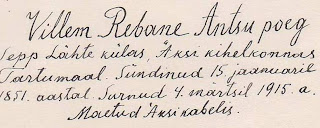 Villem Rebane Antsu poeg
Sepp Lähte külas, Äksi kihelkonnas
Tartumaal. Sündinud 15. jaanuaril
1851. aastal. Surnud 4. märtsil 1915. a.
Maetud Äksi kabelis.